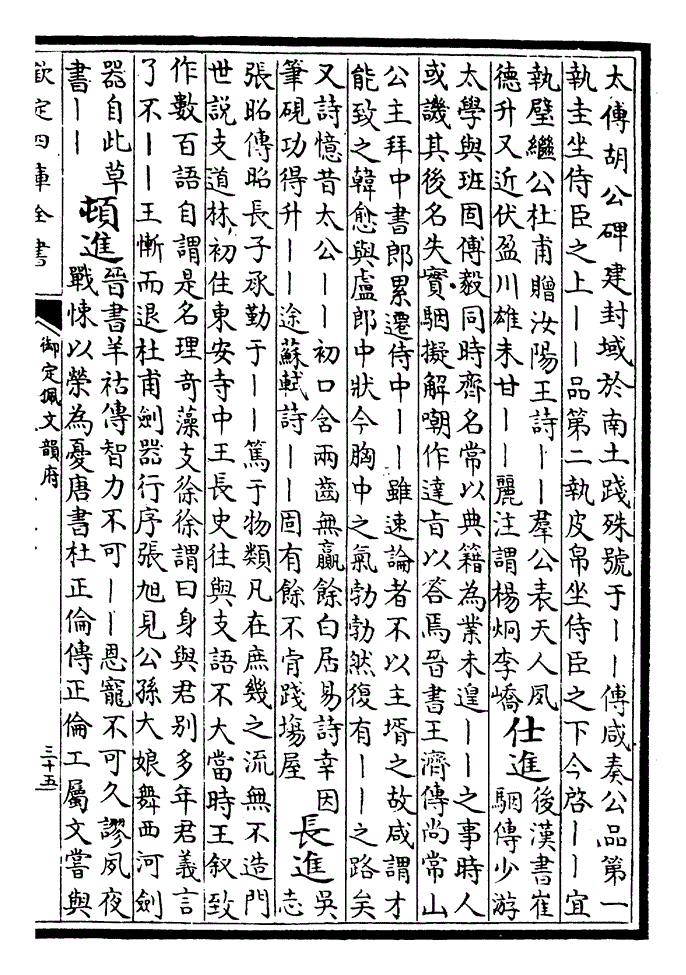 太傅胡公碑建封域於南土踐殊號于丨丨傅咸奏公品第一
執圭坐侍臣之上丨丨品第二執皮帛坐侍臣之下今啓丨丨宜
執璧繼公杜甫贈汝陽王詩丨丨羣公表天人夙
德升又近伏盈川雄未甘丨丨麗注謂楊炯李嶠
仕進
後漢書崔
駰傳少游
太學與班固傅毅同時齊名常以典籍為業未遑丨丨之事時人
或譏其後名失實駰擬解嘲作達㫖以荅焉晉書王濟傳尚常山
公主拜中書郎累遷侍中丨丨雖速論者不以主壻之故咸謂才
能致之韓愈與盧郎中狀今胸中之氣勃勃然復有丨丨之路矣
又詩憶昔太公丨丨初口含兩齒無贏餘白居易詩幸因
筆硯功得升丨丨途蘇軾詩丨丨固有餘不肯踐塲屋
長進
吳
志
張昭傳昭長子承勤于丨丨篤于物類凡在庶幾之流無不造門
世説支道林初住東安寺中王長史往與支語不大當時王叙致
作數百語自謂是名理奇藻支徐徐謂曰身與君别多年君義言
了不丨丨王慚而退杜甫劍器行序張旭見公孫大娘舞西河劍
器自此草
書丨丨
頓進
晉書羊祜傳智力不可丨丨恩寵不可久謬夙夜
戰悚以榮為憂唐書杜正倫傳正倫工屬文嘗與
欽定四庫全書
御定佩文韻府
三十五